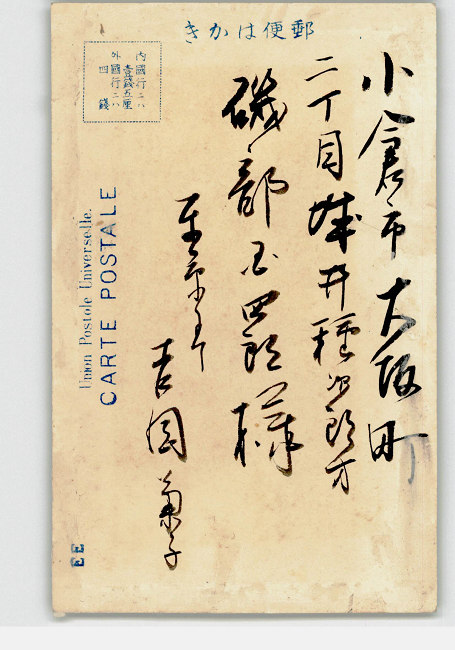 きかは便郵
内國行ニハ
壹錢五厘
外國行ニハ
四錢
小倉市大阪町
二丁目 井種次郎方
磯部 四郎様
吉岡菊子
Union Postale Universelle.
CARTE POSTALE